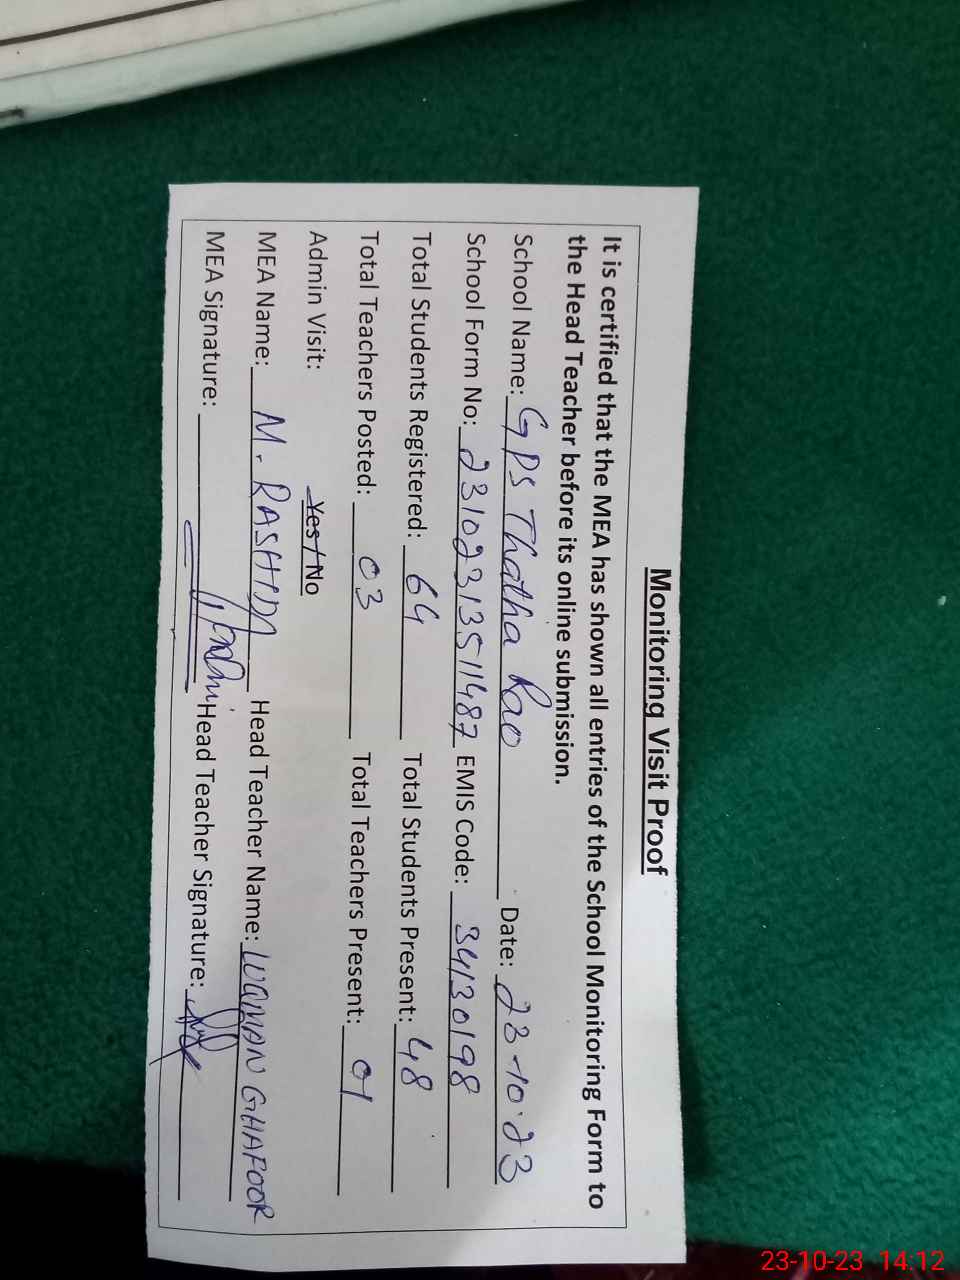 Monitoring Visit Proof
It is certified that the MEA has shown all entries of the School Monitoring Form to
the Head Teacher before its online submission.
School Name: GPS Thatha Rao Date: 23-10-23
School Form No: 23102313511487 EMIS Code: 34130198
Total Students Registered: 64 Total Students Present: 48
Total Teachers Posted: 03 Total Teachers Present: 01
Admin Visit: Yes / No
MEA Name: M. RASHID Head Teacher Name: GHAFOOR
MEA Signature: Head Teacher Signature:
23-10-23 14:12